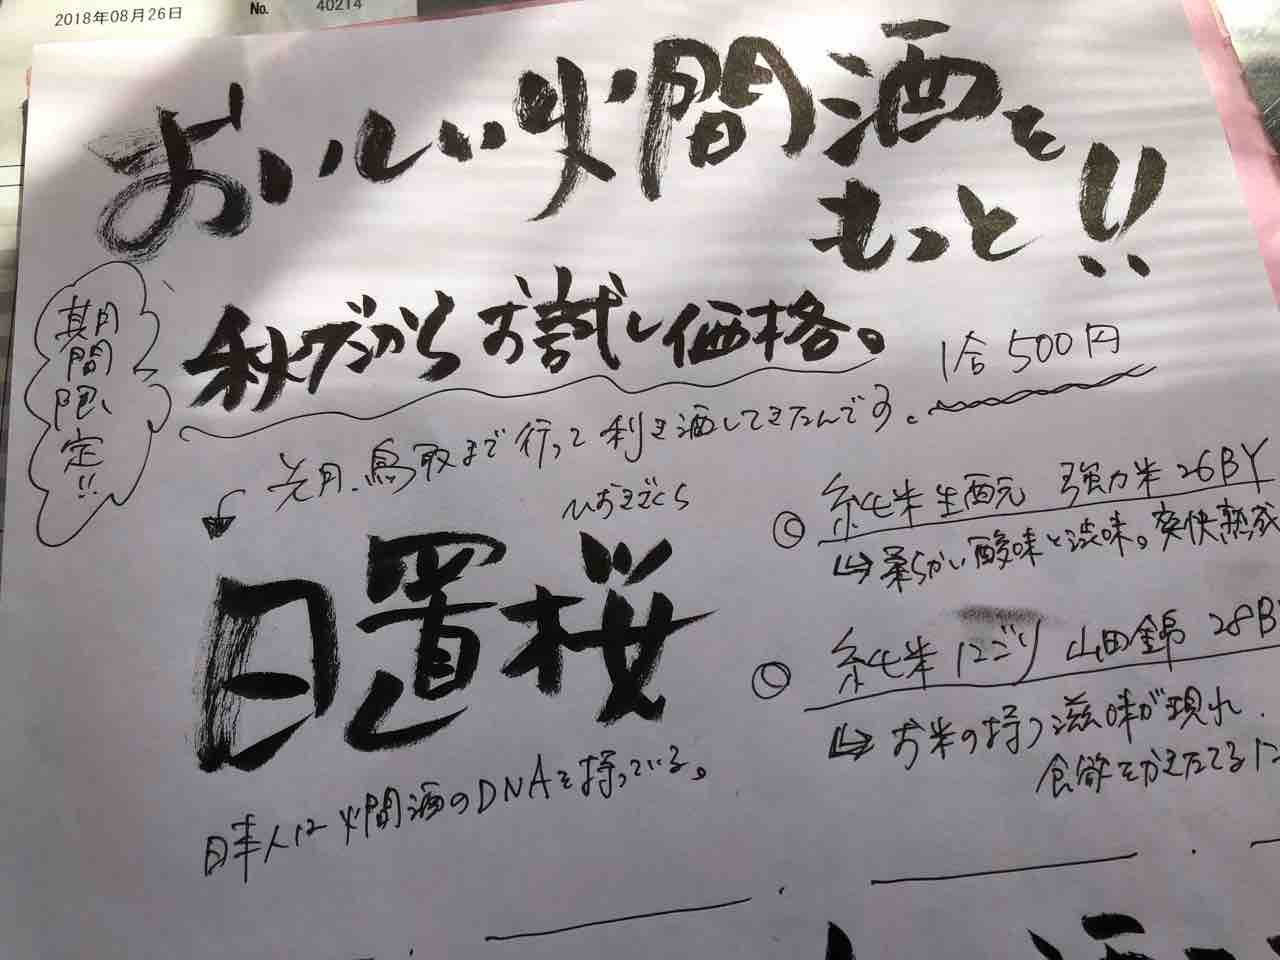 2018年08月26日 No. 40214
おいしい燗酒を
もっと!!
期間限定!!
秋だからお試し価格。
1合500円
先月、鳥取まで行って利き酒してきたんです。
ひおきざくら
日置桜
日本人は燗酒のDNAを持っている。
◎ 純米生酛 強力米 26BY
↳ 柔らかい酸味と渋味。爽快熟成
◎ 純米にごり 山田錦 28B
↳ お米の持つ滋味が現れ、
食欲をかきたてるに